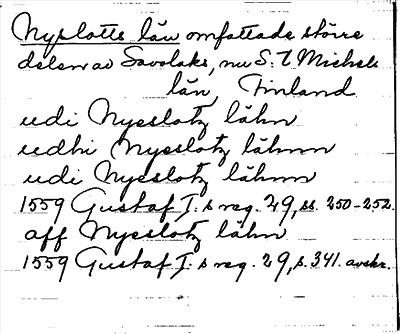 Nyslotts län omfattade större
delen av Savolaks, nu S:t Michels
län, Finland
udi Nyeslotz lähn
udhi Nyeslotz lähnn
udi Nyeslotz lähnn
1559 Gustaf I:s reg. 29, ss. 250-252.
aff Nyeslotz lähn
1559 Gustaf I:s reg. 29, s. 341. avskr.